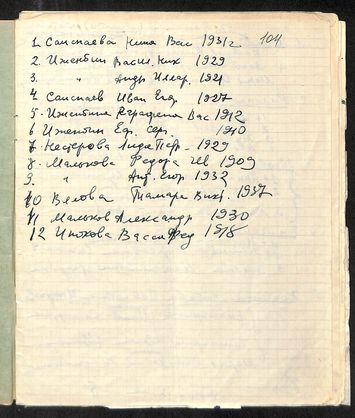 1. Саиспаева Нина Вас 1931 г 104
2. Иженбин Васил. Ник 1929
3. " Андр Иллар. 1921
4. Саиспаев Иван Егор. 1927
5. Иженбина Аграфена Вас 1912
6 Иженбин Еф. Сер. 1910
7 Нестерова Лидия 1929
8. Малькова Федора 1909
9. " Анд. Егор 1932
10 Белова Тамара Викт. 1937
11 Мальков Александр 1930
12 Васса Фед 1898